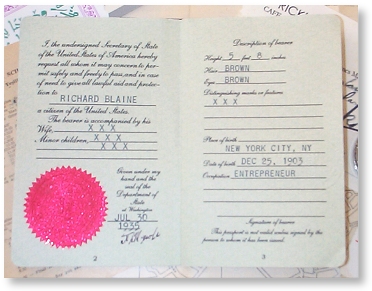 I, the undersigned Secretary of State
of the United States of America hereby
request all whom it may concern to per-
mit safely and freely to pass, and in case
of need to give all lawful aid and protec-
tion to
RICHARD BLAINE
a citizen of the United States.
The bearer is accompanied by his
Wife, X X X
Minor children, X X X
X X X
Given under my
hand and the
seal of the
Department of
State
at Washington
JUL 30
1935
2
Description of bearer
Height 5 feet 8 inches
Hair BROWN
Eyes BROWN
Distinguishing marks or features
X X X
Place of birth
NEW YORK CITY, NY
Date of birth DEC 25, 1903
Occupation ENTREPRENEUR
Signature of bearer
This passport is not valid unless signed by the
person to whom it has been issued.
3
CAFE